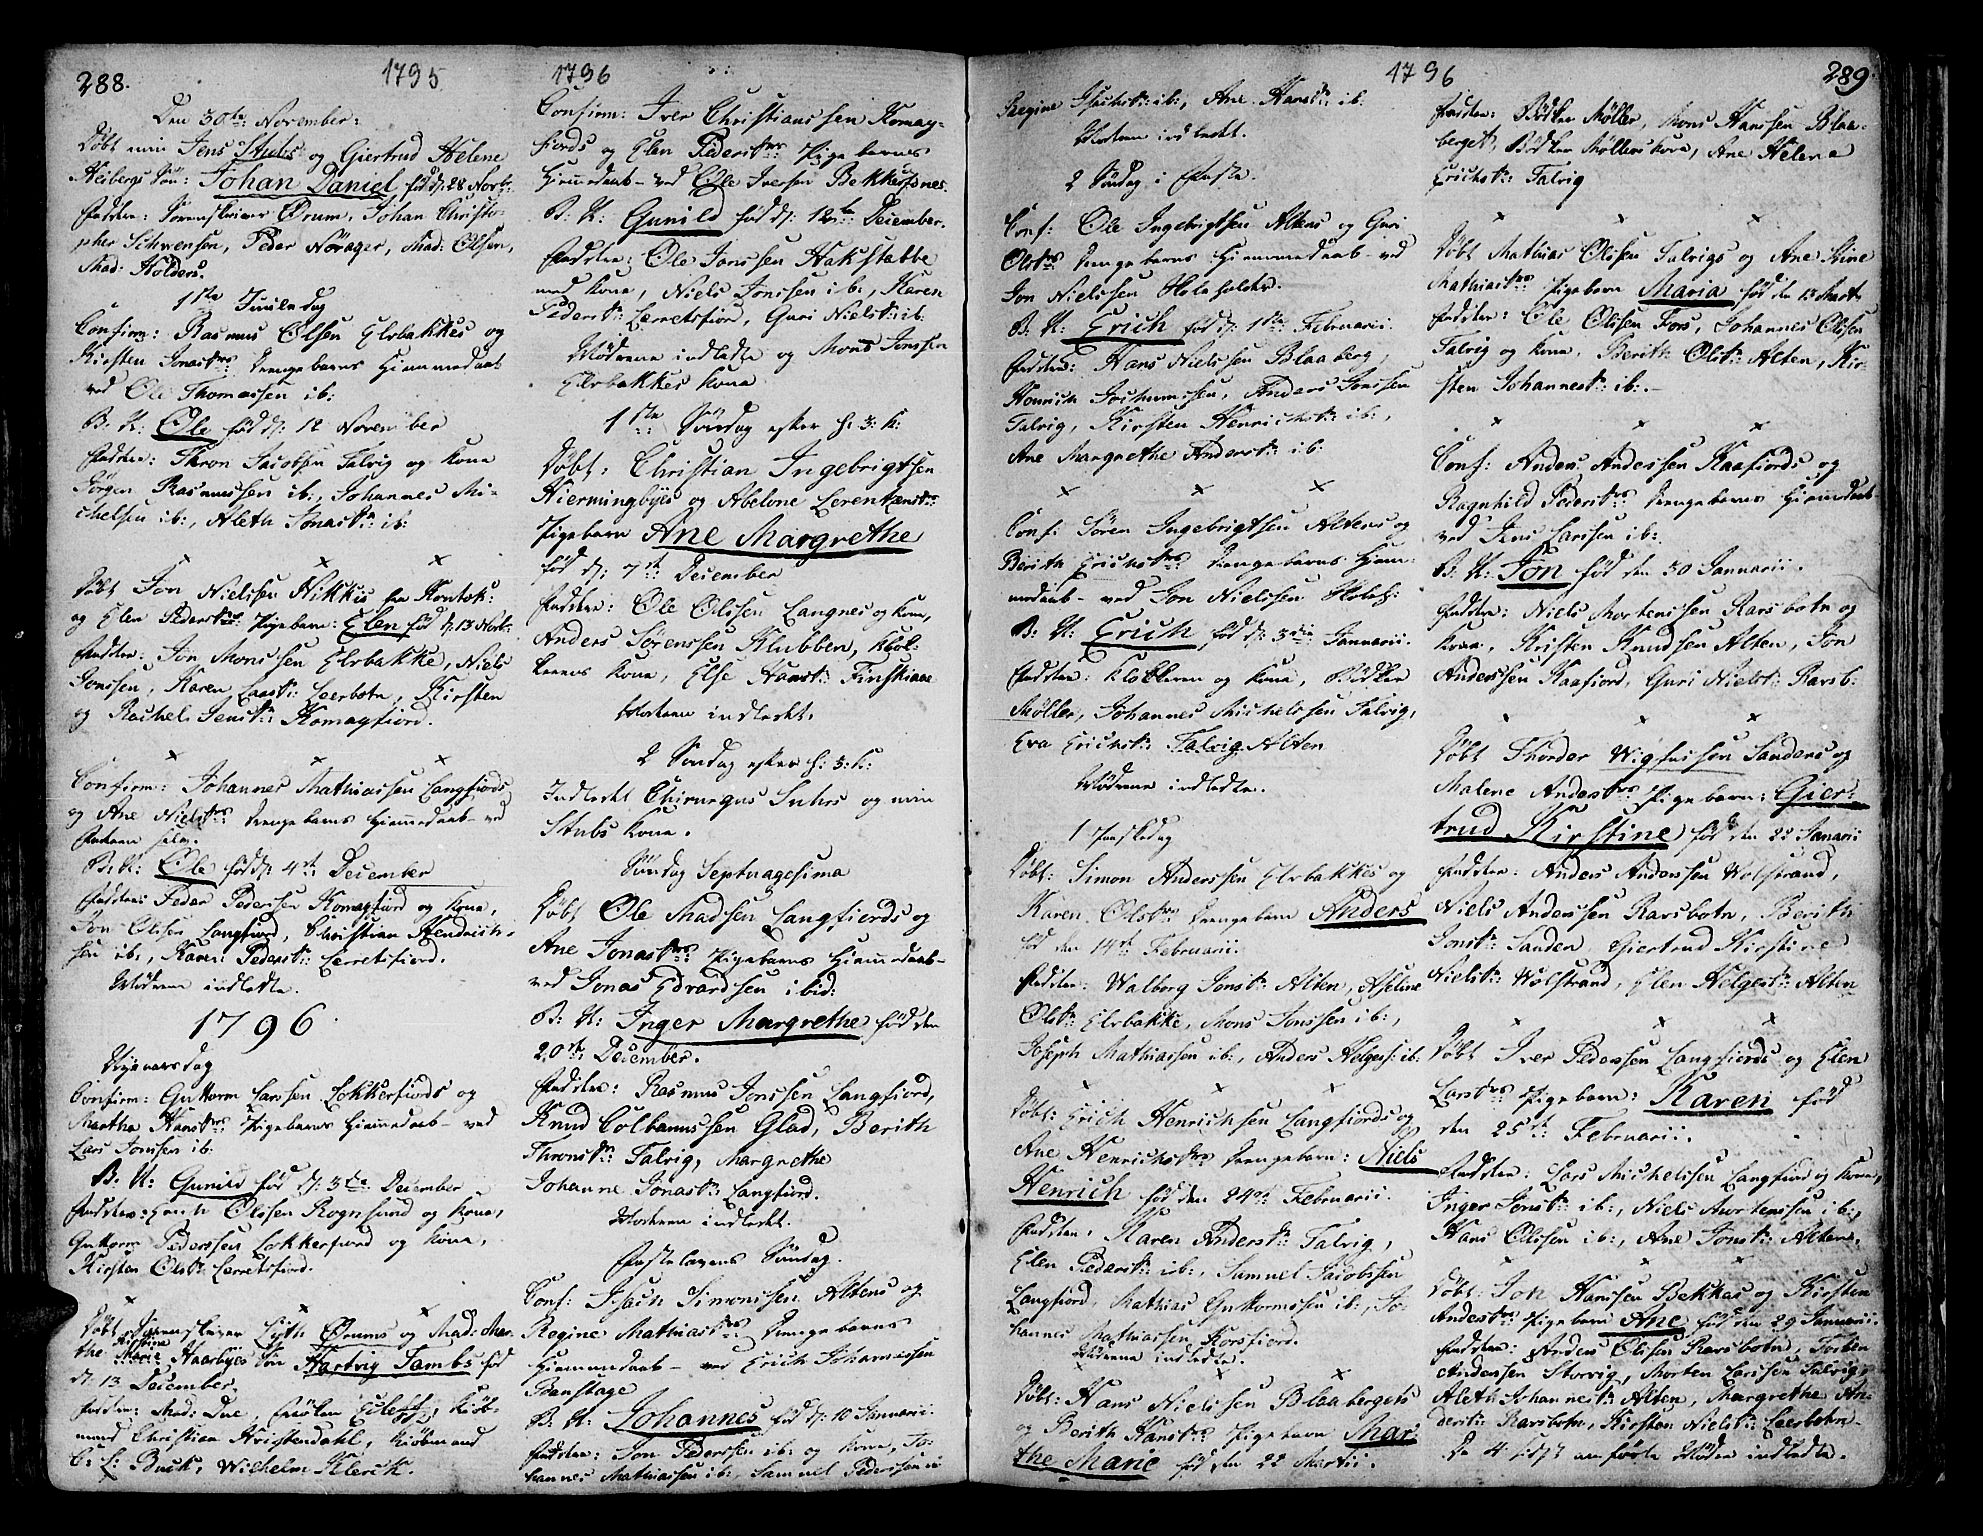 288.
1795
Den 30te November:
Døbt min Jens Stubs og Giertrud Helene
Heibergs Søn: Johan Daniel fød d: 28 Novb:
Faddere: Sorenskriver Ørum, Johan Christo-
pher Schwensen, Peder Nørager, Mad: Olsen,
Mad: Kolderu.
1ste Juuledag
Confirm: Rasmus Olsen Elvbakkes og
Kirsten Jonastrs Drengebarns Hiemmedaab
ved Ole Thomassen ib:
B: N: Ole fød d: 12 November
Faddere: Thron Jacobsen Talvig og Kone
Jørgen Rasmussen ib:, Johannes Mi-
chelsen ib:, Aleth Jonastr: ib:
× × ×
Døbt Jon Nielsen Nikkis fra Kontok:
og Elen Pederstrs Pigebarn: Elen fød d: 13 Novb:
Faddere: Jon Monssen Elvbakke, Niels
Jonssen, Karen Larstr: Leerbotn, Kirsten
og Rachel Jenstr: Komagfiord.
× × ×
Confirm: Johannes Mathiassen Langfiords
og Ane Nielstrs Drengebarns Hiemmedaab ved
Faderen selv.
B: N: Ole fød d: 4de December
Faddere: Peder Pederssen Komagfiord og Kone,
Jon Olisen Langfiord, Christian Hendrich-
sen ib:, Karen Pederstr: Lerretsfiord.
Mødrene indledte.
1796
Nyeaarsdag
Confirm: Guttorm Larssen Lokkerfiords og
Martha Hanstrs Pigebarns Hiemmedaab ved
Lars Jonssen ib:
B: N: Gunild fød d: 3die December
Faddere: Olisen Rognsund og Kone,
Guttorm Pederssen Lokkerfiord og Kone,
Kirsten Olstr: Lerretsfiord.
× × ×
Døbt Sorenskriver Lyth Ørums og Mad: Mar-
the Kirstine Marie Haarbyes Søn Hartvig Lambs fød
d: 13 December.
Faddere: Mad: Due, Frøken Eileff, Kiøb-
mand Christian Kristendahl, Kiøbmand
C: F: Buck, Wilhelm Klerck.
1796
Confirm: Iver Christianssen Komag-
fiords og Elen Pederstrs Pigebarns
Hiemmedaab ved Ole Iversen Bekkesfnes.
B: N: Gunild fød d: 12te December.
Faddere: Ole Jonssen Hakstabbe
med Kone, Niels Jonssen ib:, Karen
Pederstr: Lerretsfior, Guri Nielstr: ib:
Mødrene indledte og Mons Jonssen
Elvbakkes Kone
1ste Søndag efter H: 3: K:
Døbt: Christian Ingebrigtsen
Hiermingbyes og Abelone Lorentzenstr:
Pigebarn Ane Margrethe
fød d: 7de December
Faddere: Ole Olissen Langnes og Kone,
Anders Sørenssen Klubben, Klok-
kerens Kone, Else Hanstr: Finskiaae
Moderen indledt.
2 Søndag efter H: 3: K:
Indledt Chirurgus Suhrs og min
Stubs Kone.
Søndag Septuagesima
Døbt Ole Madsen Langfiords og
Ane Jonastrs Pigebarns Hiemmedaab
ved Jonas Edvardsen ibid:
B: N: Inger Margrethe fød den
20de December.
Faddere: Rasmus Jonssen Langfiord,
Knud Colbanussen Glad, Berith
Thronstr: Talvig, Margrethe
Johanne Jonastr: Langfiord.
Moderen indledt.
Fastelavens Søndag.
Conf: Isach Simonssen Altens og
Regine Mathiastrs Drengebarns
Hiemmedaab ved Erich Johannessen
Banstage
B: N: Johannes fød d: 10 Januarii
Faddere: Jon Pederssen ib: og Kone, Jo-
hannes Mathiassen ib:, Samuel Pederssen ib:
1796
289.
Regine Isachstr: ib:, Ane Hanstr: ib:
Moderen indledt.
2 Søndag i Faste.
Conf: Ole Ingebrigtsen Altens og Guri
Olstrs Drengebarns Hiemmedaab ved
Jon Nielssen Holeholder.
B: N: Erich fød d: 1ste Februarii.
Faddere: Hans Nielssen Blaaberg,
Henrich Jochumssen, Anders Jonssen
Talvig, Kirsten Henrichstr: ib:,
Ane Margrethe Anderstr: ib:
× × ×
Conf: Søren Ingebrigtsen Altens og
Berith Erichstrs Drengebarns Hiem-
medaab ved Jon Nielsen Holeh:
B: N: Erich fød d: 3die Januarii.
Faddere: Klokkeren og Kone, Bødker
Møller, Johannes Michelssen Talvig,
Eva Erichstr: Talvig Alten
Mødrene indledte.
1 Paaskedag
Døbt: Simon Anderssen Elvbakkes og
Karen Olstrs Drengebarn Anders
fød den 14de Februarii.
Faddere: Walborg Jonstr: Alten, Aseline
Olstr: Elvbakke, Mons Jonssen ib:,
Joseph Mathiassen ib:, Anders Helgers: ib:
× × ×
Døbt: Erich Henrichsen Langfiords og
Ane Henrichstrs Drengebarn: Niels
Henrich fød den 24de Februarii.
Faddere: Karen Anderstr: Talvig,
Elen Pederstr: ib:, Samuel Jacobssen
Langfiord, Mathias Guttormssen ib:, Jo-
hannes Mathiassen Korsfiord.
Mødrene indledte.
× ×
Døbt: Hans Nielssen Blaabergets
og Berith Hanstrs Pigebarn Mar-
the Marie fød den 22 Martii.
Faddere: Bødker Møller, Mons Hanssen Blaa-
berget, Bødker Møllers Kone, Ane Helena
Erichstr: Talvig
× × ×
Døbt Mathias Olissen Talvigs og Ane Stine
Mathiastrs Pigebarn Maria fød den 13 Mart:
Faddere: Ole Olissen Fors, Johannes Olissen
Talvig og Kone, Berith Olstr: Alten, Kir-
sten Johannestr: ib:.
× × ×
Conf: Anders Anderssen Kaafiords og
Ragnhild Pederstrs Drengebarns Hiemmedaab
ved Jens Larssen ib:
B: N: Jon fød den 30 Januarii.
Faddere: Niels Mortenssen Rarsbotn og
Kone, Kristen Knudsen Alten, Jon
Anderssen Kaafiord, Guri Nielstr: Rarsb:
× × ×
Døbt Thorder Wigfussen Sandens og
Malene Anderstrs Pigebarn: Gier-
trud Kirstine fød den 22 Januarii
Faddere: Anders Anderssen Wolstrand,
Niels Anderssen Rarsbotn, Berith
Jonstr: Sanden, Giertrud Kirstine
Nielstr: Wolstrand, Elen Helgerstr: Alten
× × ×
Døbt Iver Pederssen Langfiords og Elen
Larstrs Pigebarn: Karen fød
den 25de Februarii.
Faddere: Lars Michelssen Langfiord og Kone,
Inger Jonstr: ib:, Niels Mortenssen ib:,
Hans Olssen ib:, Ane Jonstr: Altens.
× × ×
Døbt: Jon Hanssen Bekkas og Kirsten
Anderstrs Pigebarn Ane fød den 29 Januarii.
Faddere: Anders Olissen Rarsbotn, Torsten
Andersen Storvig, Morten Larssen Talvig,
Aleth Johannestr: Alten, Margrethe An-
derstr: Rarsbotn, Kirsten Nielstr: Leerbotn
De 4 sidst anførte Mødre indledte.